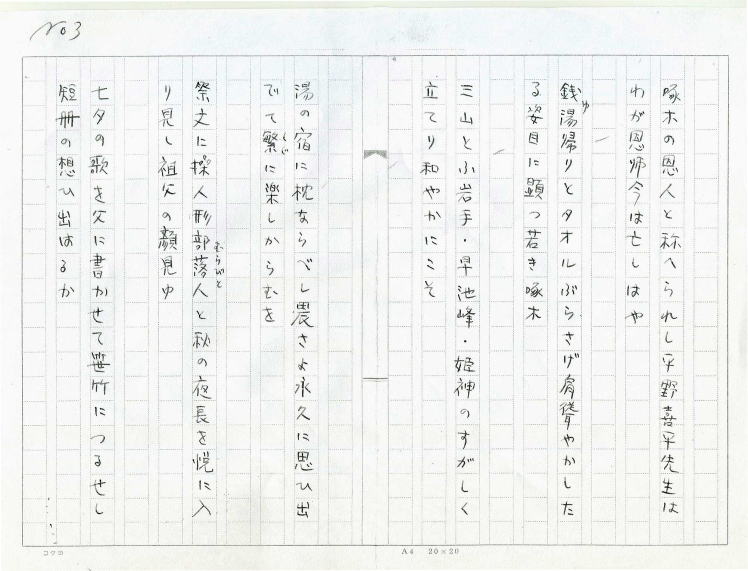 No3
啄木の恩人と称へられし平野喜平先生は
わが恩師今は亡しはや
銭湯帰りとタオルぶらさげ肩聳やかした
ゆ
る姿目に顕つ若き啄木
三山とふ岩手・早池峰・姫神のすがしく
立てり和やかにこそ
湯の宿に枕ならべし農さよ永久に思ひ出
でて繁に楽しからむを
しじ
祭文に操人形部落人と秋の夜長を悦に入
むらびと
り見し祖父の顔見ゆ
七夕の歌を父に書かせて笹竹につるせし
短冊の想ひ出はるか
コクヨ
A4 20×20